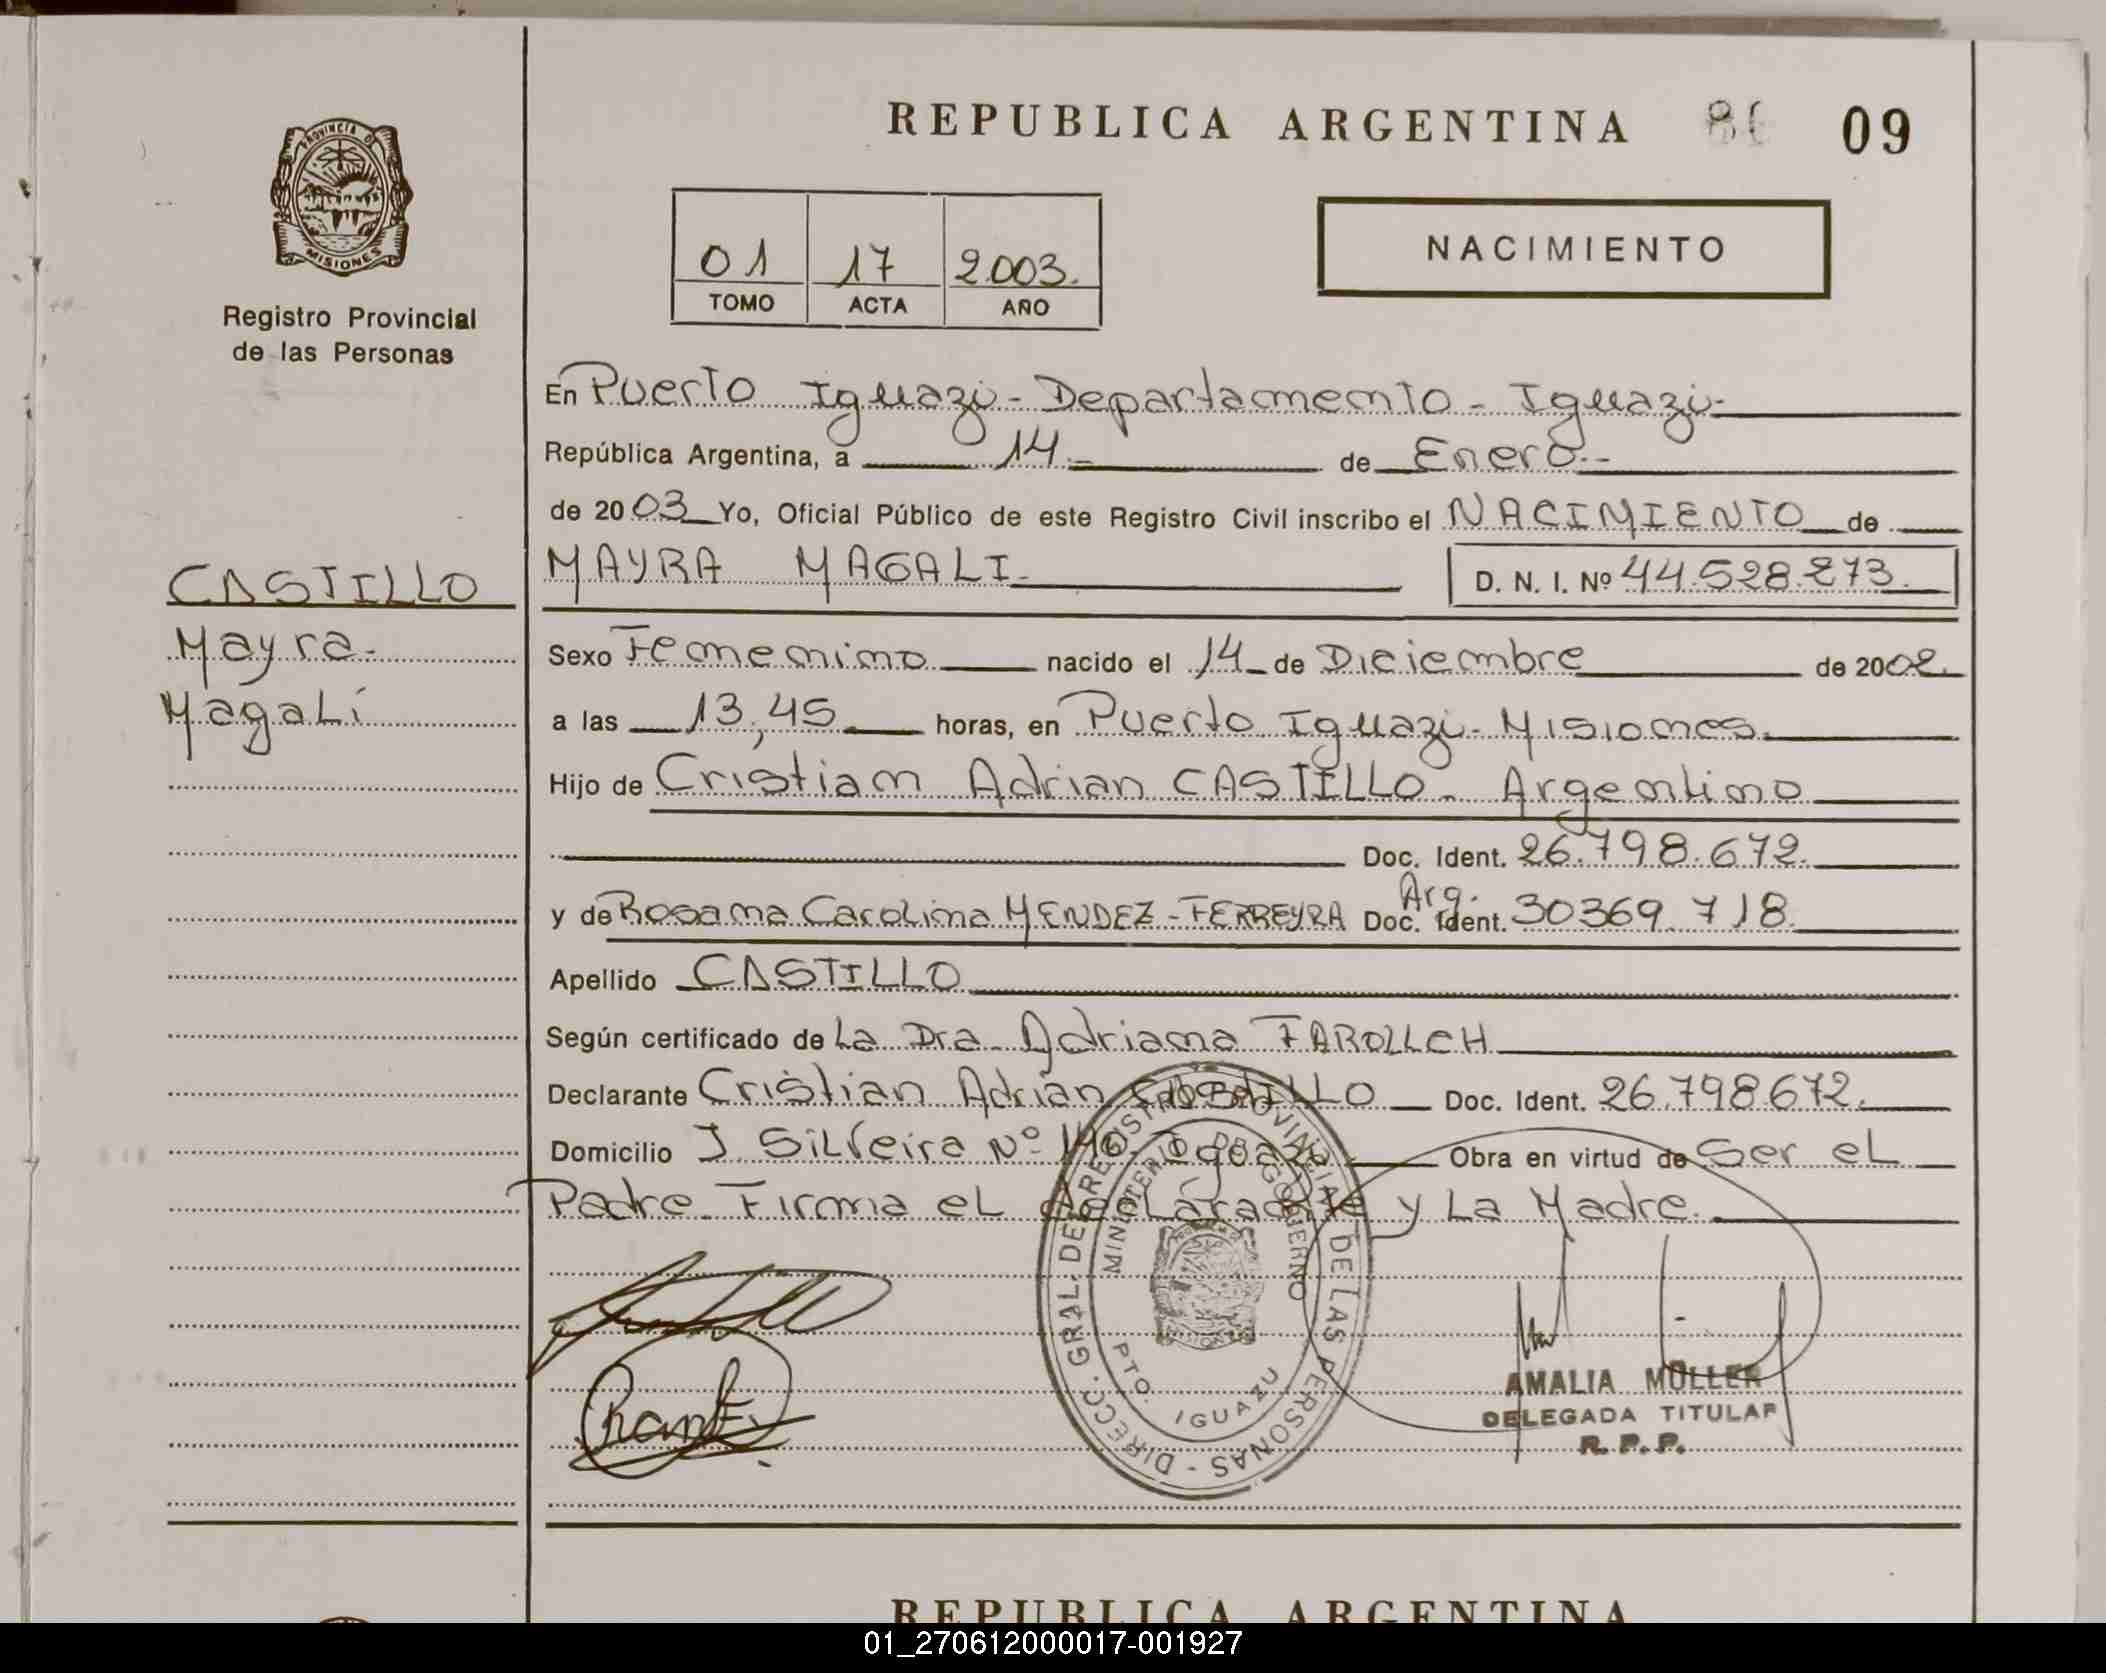 REPUBLICA ARGENTINA 09
PROVINCIA DE
MISIONES
Registro Provincial
de las Personas
01 17 2.003.
TOMO ACTA AÑO
NACIMIENTO
En Puerto Iguazú - Departamento - Iguazú -
República Argentina, a 14.- de Enero.-
de 2003 Yo, Oficial Público de este Registro Civil inscribo el NACIMIENTO de
MAYRA MAGALI.- D. N. I. Nº 44.528.273.
CASTILLO
Mayra.
Magali
Sexo Femenino nacido el 14 de Diciembre de 2002.
a las 13,45 horas, en Puerto Iguazú - Misiones.
Hijo de Cristian Adrian CASTILLO - Argentino
Doc. Ident. 26.798.672.
Arg.
y de Rosana Carolina MENDEZ - FERREYRA Doc. Ident. 30369.718.
Apellido CASTILLO
Según certificado de La Dra. Adriana FAROLLCH
Declarante Cristian Adrian CASTILLO Doc. Ident. 26.798672.
Domicilio J. Silveira Nº 140 Iguazú Obra en virtud de Ser el
Padre. Firma el declarante y La Madre.
DIRECC. GRAL. DEL REGISTRO PROVINCIAL DE LAS PERSONAS -
MINISTERIO DE GOBIERNO
PTO. IGUAZU
AMALIA MÜLLER
DELEGADA TITULAR
R. P. P.
REPUBLICA ARGENTINA
01_270612000017-001927